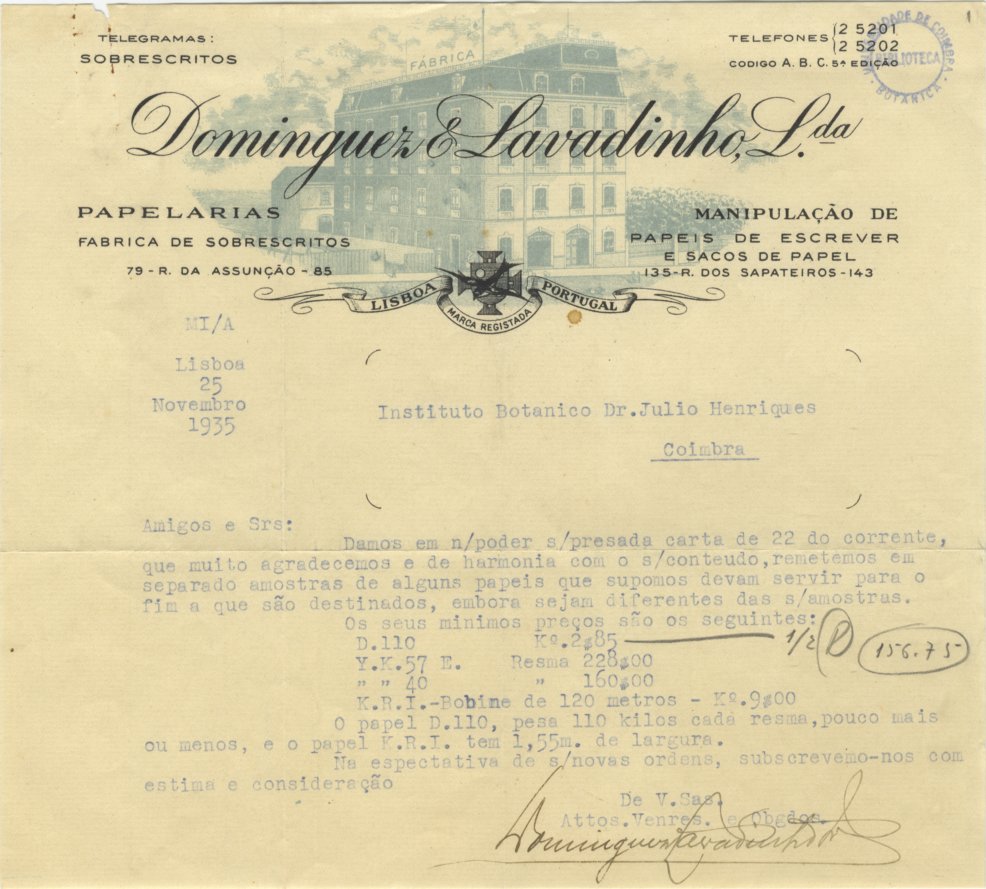 1
TELEGRAMAS:
SOBRESCRITOS
FÁBRICA
TELEFONES 2 5201
2 5202
CODIGO A. B. C. 5ª EDIÇÃO
UNIVERSIDADE DE COIMBRA
BIBLIOTECA
BOTÂNICA
Dominguez & Lavadinho, L.da
PAPELARIAS
FABRICA DE SOBRESCRITOS
79 - R. DA ASSUNÇÃO - 85
MANIPULAÇÃO DE
PAPEIS DE ESCREVER
E SACOS DE PAPEL
135-R. DOS SAPATEIROS-143
LISBOA PORTUGAL
MARCA REGISTADA
MI/A
Lisboa
25
Novembro
1935
Instituto Botanico Dr.Julio Henriques
Coimbra
Amigos e Srs:
Damos em n/poder s/presada carta de 22 do corrente,
que muito agradecemos e de harmonia com o s/conteudo,remetemos em
separado amostras de alguns papeis que supomos devam servir para o
fim a que são destinados, embora sejam diferentes das s/amostras.
Os seus minimos preços são os seguintes:
D.110 Kº.2$85 1/2 D 156.75
Y.K.57 E. Resma 228$00
" " 40 " 160$00
K.R.I.-Bobine de 120 metros - Kº.9$00
O papel D.110, pesa 110 kilos cada resma,pouco mais
ou menos, e o papel K.R.I. tem 1,55m. de largura.
Na espectativa de s/novas ordens, subscrevemo-nos com
estima e consideração
De V.Sas.
Attos.Venres. e Obgdos.
Dominguez Lavadinho